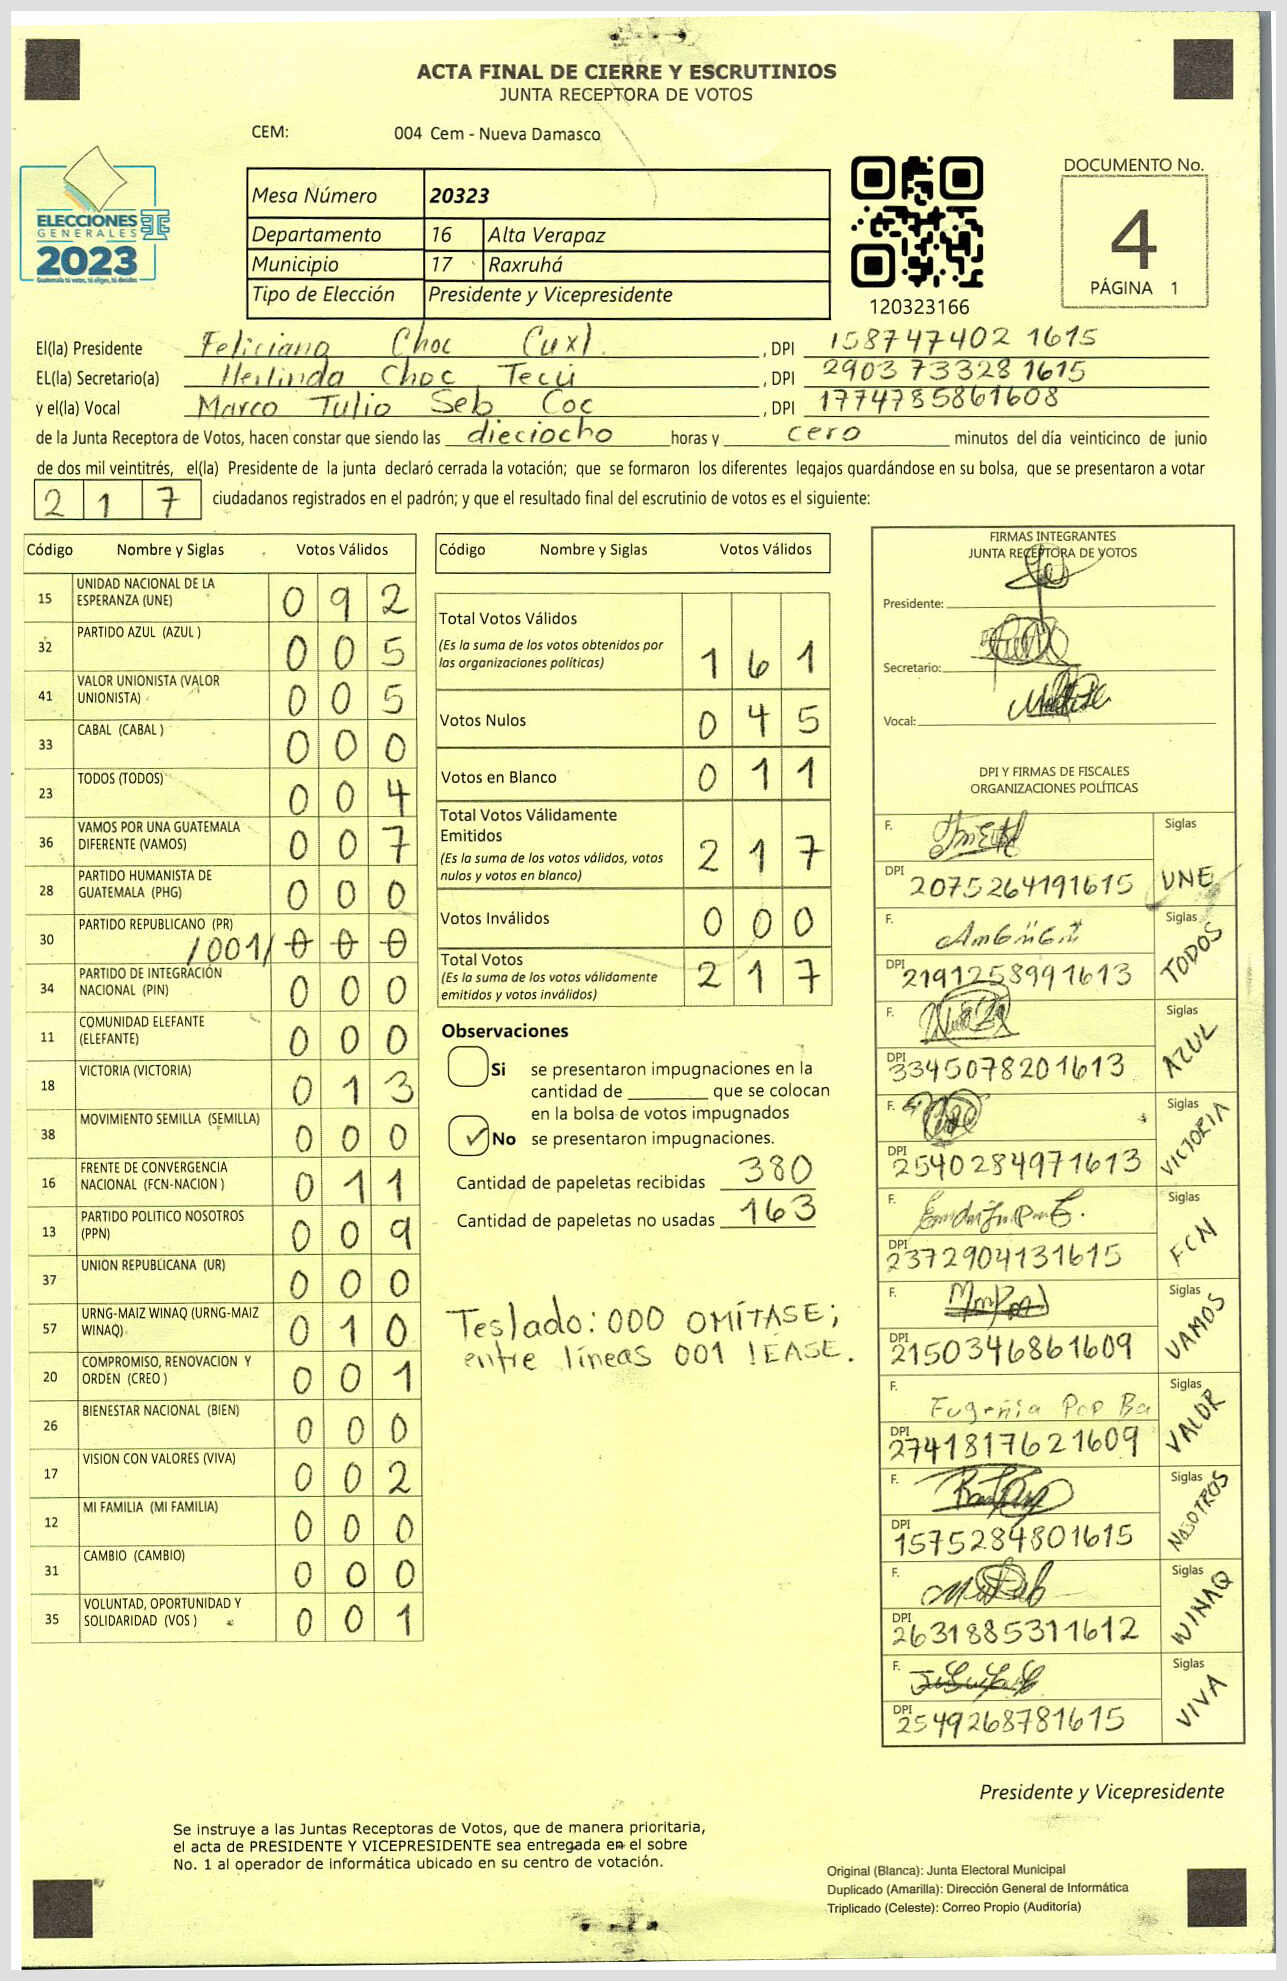 ACTA FINAL DE CIERRE Y ESCRUTINIOS
JUNTA RECEPTORA DE VOTOS
CEM: 004 Cem - Nueva Damasco
ELECCIONES
GENERALES
2023
Guatemala tú votas, tú eliges, tú decides
Mesa Número 20323
Departamento 16 Alta Verapaz
Municipio 17 Raxruhá
Tipo de Elección Presidente y Vicepresidente
120323166
DOCUMENTO No.
4
PÁGINA 1
El(la) Presidente Feliciano Choc Cuxl. , DPI 158747402 1615
EL(la) Secretario(a) Herlinda Choc Tecú , DPI 2903 73328 1615
y el(la) Vocal Marco Tulio Seb Coc , DPI 1774735861608
de la Junta Receptora de Votos, hacen constar que siendo las dieciocho horas y cero minutos del día veinticinco de junio
de dos mil veintitrés, el(la) Presidente de la junta declaró cerrada la votación; que se formaron los diferentes legajos quardándose en su bolsa, que se presentaron a votar
217 ciudadanos registrados en el padrón; y que el resultado final del escrutinio de votos es el siguiente:
Código Nombre y Siglas Votos Válidos
15 UNIDAD NACIONAL DE LA
ESPERANZA (UNE) 092
32 PARTIDO AZUL (AZUL ) 005
41 VALOR UNIONISTA (VALOR
UNIONISTA) 005
33 CABAL (CABAL ) 000
23 TODOS (TODOS) 004
36 VAMOS POR UNA GUATEMALA
DIFERENTE (VAMOS) 007
28 PARTIDO HUMANISTA DE
GUATEMALA (PHG) 000
30 PARTIDO REPUBLICANO (PR)
/001/ 000
34 PARTIDO DE INTEGRACIÓN
NACIONAL (PIN) 000
11 COMUNIDAD ELEFANTE
(ELEFANTE) 000
18 VICTORIA (VICTORIA) 013
38 MOVIMIENTO SEMILLA (SEMILLA) 000
16 FRENTE DE CONVERGENCIA
NACIONAL (FCN-NACION ) 011
13 PARTIDO POLITICO NOSOTROS
(PPN) 009
37 UNION REPUBLICANA (UR) 000
57 URNG-MAIZ WINAQ (URNG-MAIZ
WINAQ) 010
20 COMPROMISO, RENOVACION Y
ORDEN (CREO ) 001
26 BIENESTAR NACIONAL (BIEN) 000
17 VISION CON VALORES (VIVA) 002
12 MI FAMILIA (MI FAMILIA) 000
31 CAMBIO (CAMBIO) 000
35 VOLUNTAD, OPORTUNIDAD Y
SOLIDARIDAD (VOS ) 001
Código Nombre y Siglas Votos Válidos
Total Votos Válidos
(Es la suma de los votos obtenidos por
las organizaciones políticas) 161
Votos Nulos 045
Votos en Blanco 011
Total Votos Válidamente
Emitidos
(Es la suma de los votos válidos, votos
nulos y votos en blanco) 217
Votos Inválidos 000
Total Votos
(Es la suma de los votos válidamente
emitidos y votos inválidos) 217
Observaciones
Si se presentaron impugnaciones en la
cantidad de ________ que se colocan
en la bolsa de votos impugnados
✓ No se presentaron impugnaciones.
Cantidad de papeletas recibidas 380
Cantidad de papeletas no usadas 163
Teslado: 000 OMÍTASE;
entre líneas 001 lEASE.
FIRMAS INTEGRANTES
JUNTA RECEPTORA DE VOTOS
Presidente:
Secretario:
Vocal:
DPI Y FIRMAS DE FISCALES
ORGANIZACIONES POLÍTICAS
F. Siglas
DPI 2075264191615 UNE
F. Siglas
DPI 2191258991613 TODOS
F. Siglas
DPI 3345078201613 AZUL
F. Siglas
DPI 2540284971613 VICTORIA
F. Siglas
DPI 2372904131615 FCN
F. Siglas
DPI 2150346861609 VAMOS
F. Eugenia Pop Ba Siglas
DPI 2741817621609 VALOR
F. Siglas
DPI 1575284801615 NOSOTROS
F. Siglas
DPI 2631885311612 WINAQ
F. Siglas
DPI 2549268781615 VIVA
Presidente y Vicepresidente
Se instruye a las Juntas Receptoras de Votos, que de manera prioritaria,
el acta de PRESIDENTE Y VICEPRESIDENTE sea entregada en el sobre
No. 1 al operador de informática ubicado en su centro de votación.
Original (Blanca): Junta Electoral Municipal
Duplicado (Amarilla): Dirección General de Informática
Triplicado (Celeste): Correo Propio (Auditoría)